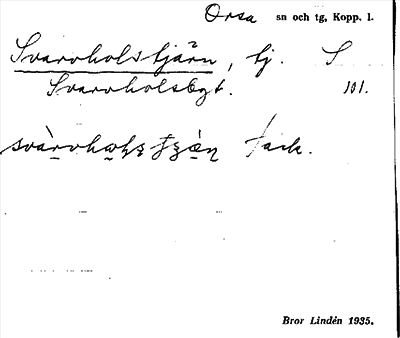 Orsa sn och tg, Kopp. l.
Svarvholstjärn, tj. S
Svarvholsbgt. 101.
Jack.
Bror Lindén 1935.